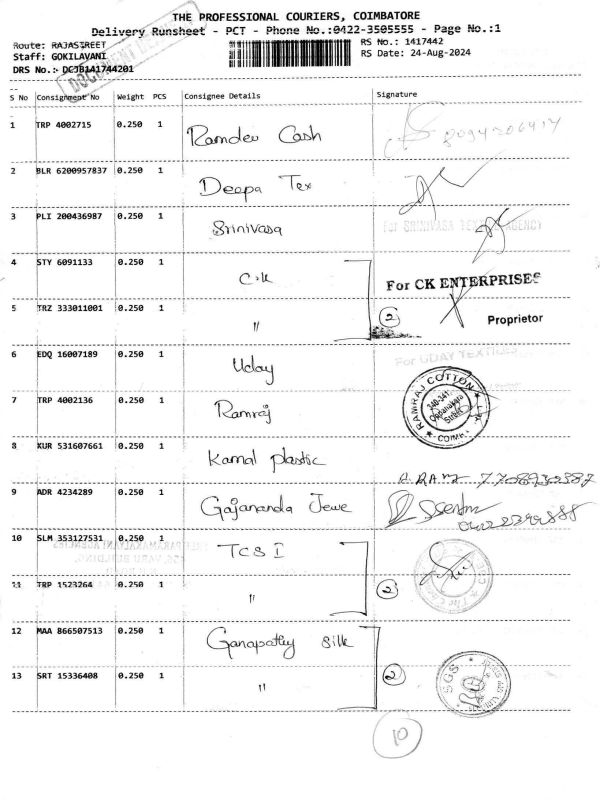 THE PROFESSIONAL COURIERS, COIMBATORE
Delivery Runsheet - PCT - Phone No.:0422-3505555 - Page No.:1
Route: RAJASTREET RS No.: 1417442
Staff: GOKILAVANI RS Date: 24-Aug-2024
DRS No.:- DCJB141744201
DOCUMENT
S No Consignment No Weight PCS Consignee Details Signature
1 TRP 4002715 0.250 1 Ramdev Cash
2 BLR 6200957837 0.250 1 Deepa Tex
3 PLI 200436987 0.250 1 Srinivasa For SRINIVASA TEXTILE AGENCY
4 STY 6091133 0.250 1 C.K For CK ENTERPRISES
5 TRZ 333011001 0.250 1 " 2 Proprietor
6 EDQ 16007189 0.250 1 Uday For UDAY TEXTILES
7 TRP 4002136 0.250 1 Ramraj RAMRAJ COTTON 340-341, Oppanakara Street
8 KUR 531607661 0.250 1 Kamal plastic
9 ADR 4234289 0.250 1 Gajananda Jewe
10 SLM 353127531 0.250 1 TCS I
11 TRP 1523264 0.250 1 " 2
12 MAA 866507513 0.250 1 Ganapathy Silk
13 SRT 15336408 0.250 1 " 2 SGS
10